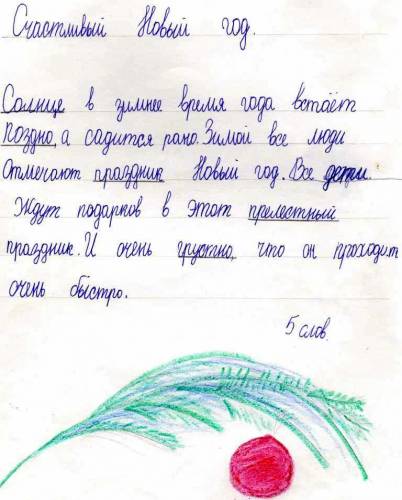 Счастливый Новый год.
Солнце в зимнее время года встаёт
поздно, а садится рано. Зимой все люди
отмечают праздник Новый год. Все дети
ждут подарков в этот прелестный
праздник. И очень грустно, что он проходит
очень быстро.
5 слов.